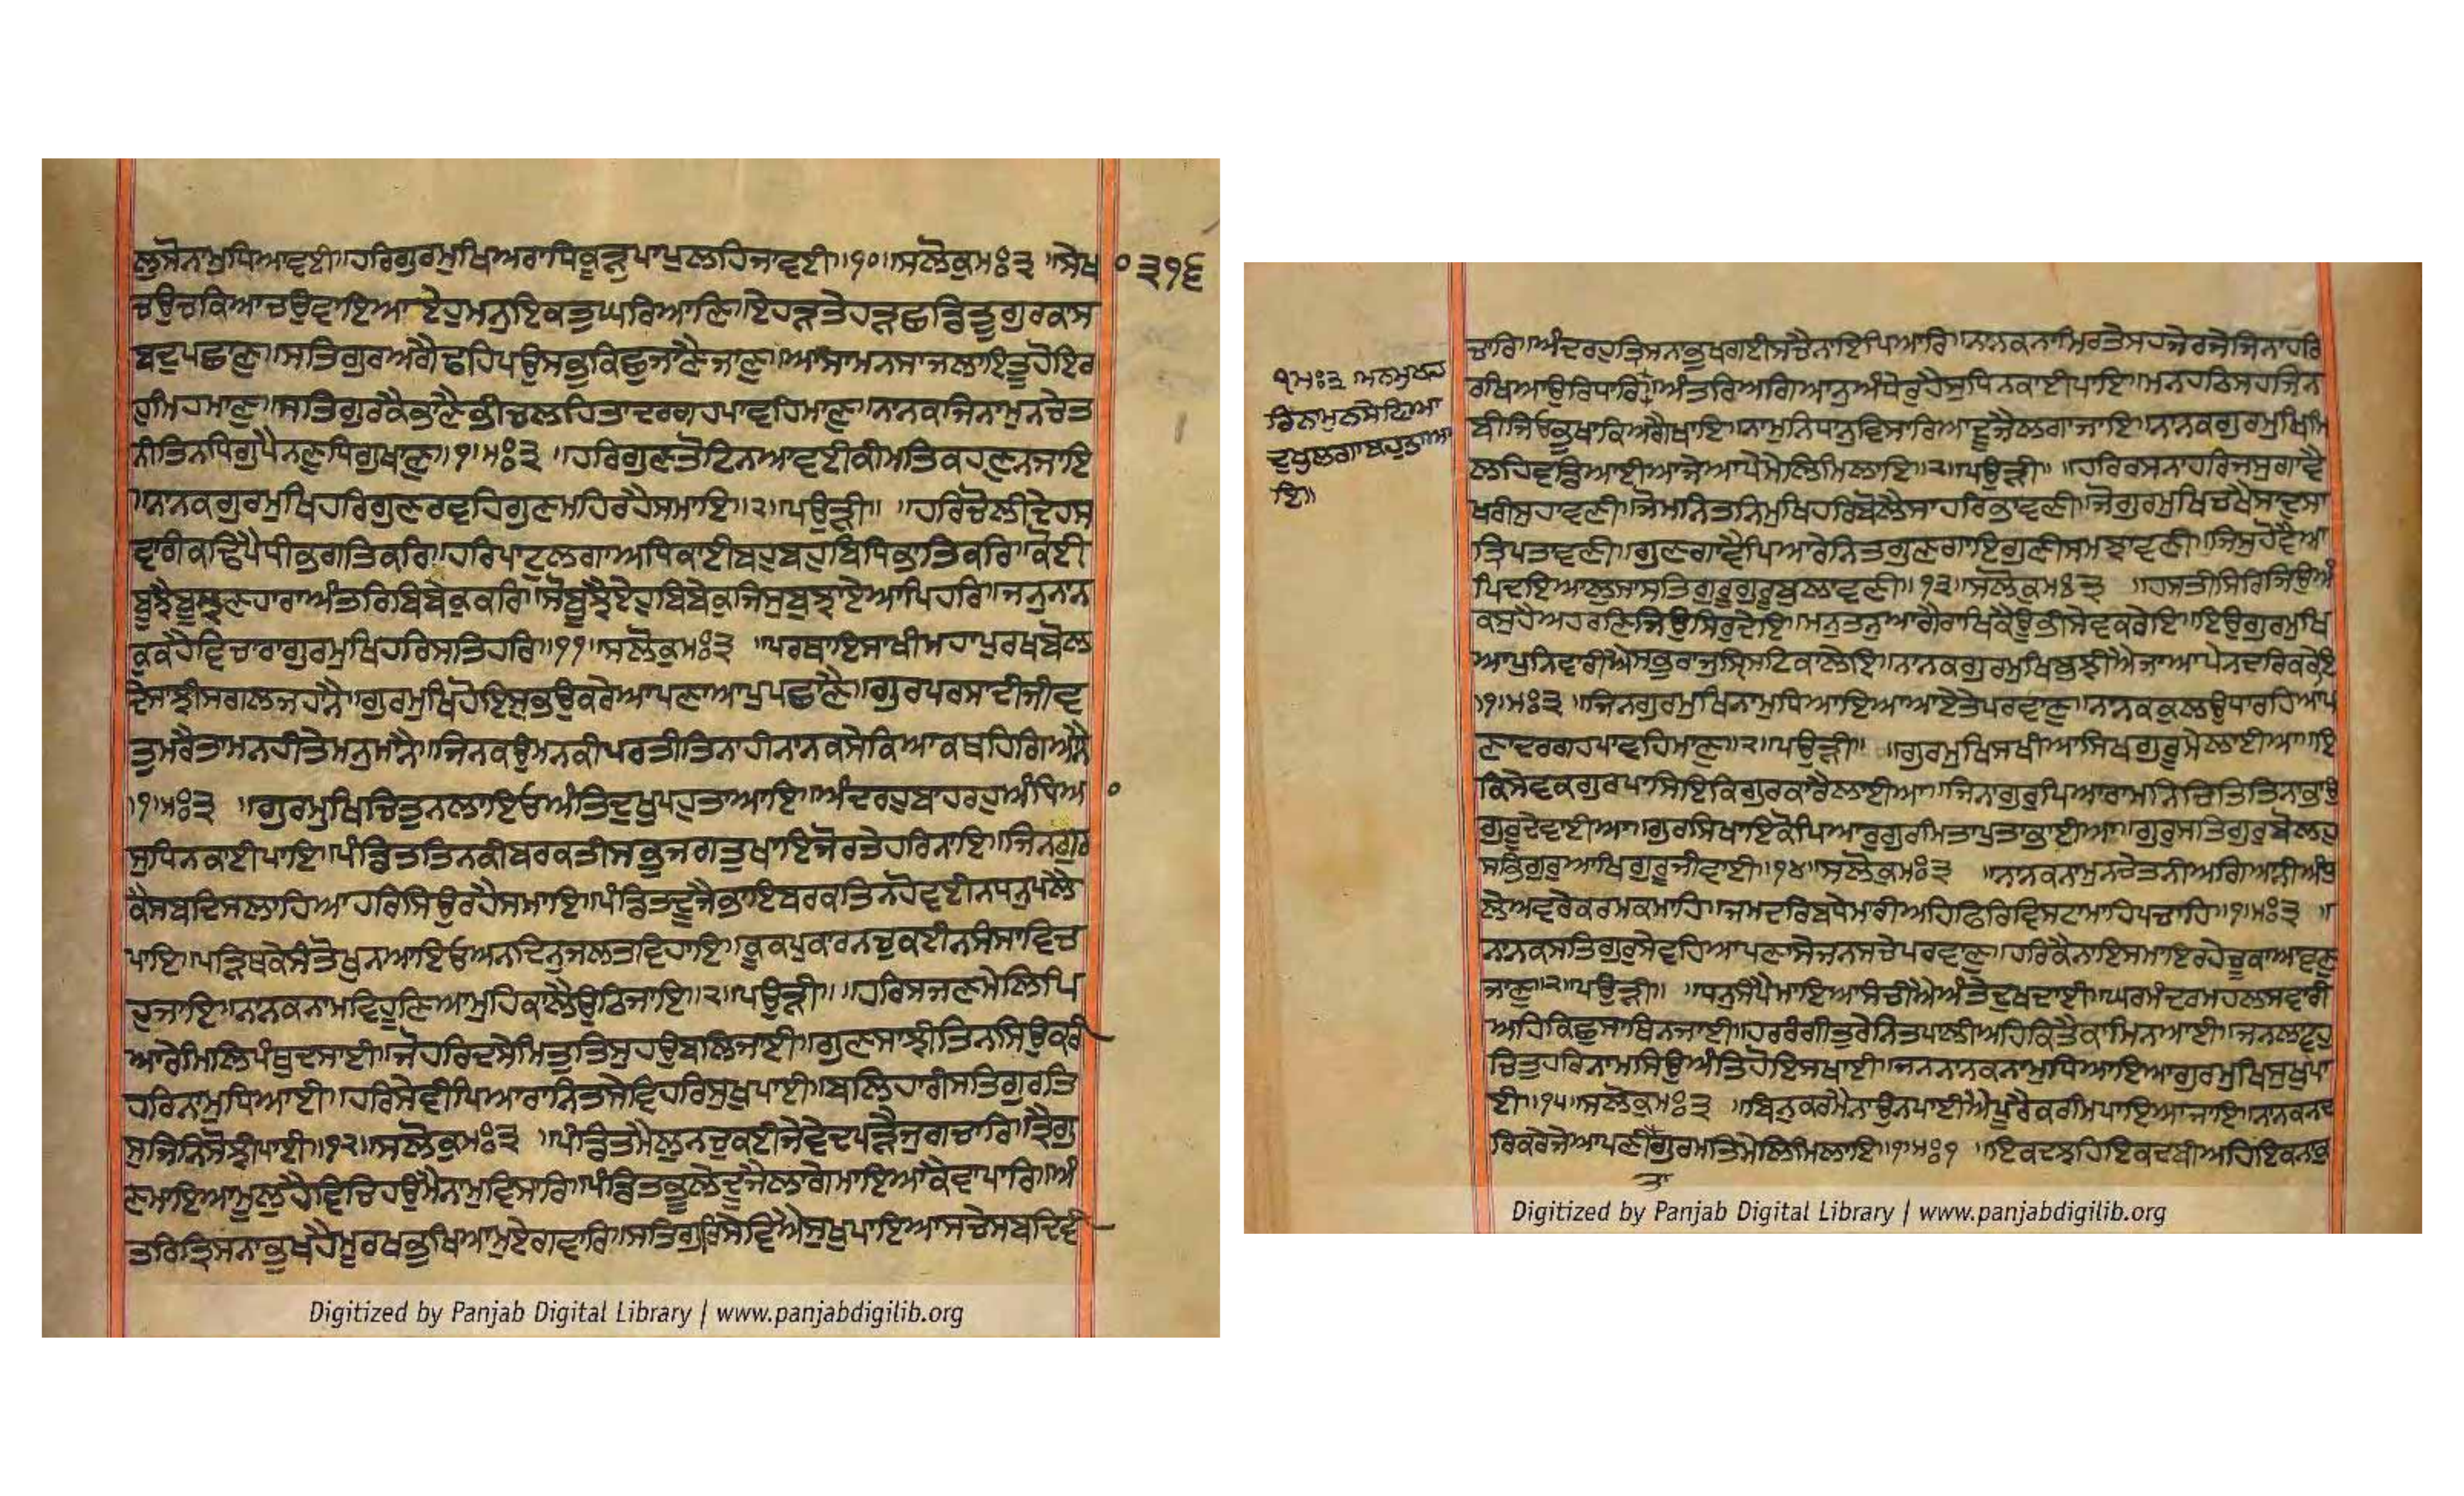 ਲੁਸੋਨਾਮੁਧਿਆਵਈ॥ਹਰਿਗੁਰਮੁਖਿਅਰਾਧਿਕੂੜੁਪਾਪੁਲਹਿਜਾਵਈ॥੧੦॥ਸਲੋਕੁਮਃ੩ ॥ਸੇਖ
ਚਉਚਕਿਆਚਉਵਾਇਆਏਹੁਮਨੁਇਕਤੁਘਰਿਆਣਿ॥ਏਹੜਤੇਹੜਛਡਿਤੂਗੁਰਕਾਸ
ਬਦੁਪਛਾਣੁ॥ਸਤਿਗੁਰਅਗੈਢਹਿਪਉਸਭੁਕਿਛੁਜਾਣੈਜਾਣੁ॥ਆਸਾਮਨਸਾਜਲਾਇਤੂਹੋਇਰ
ਹੁਮਿਹਮਾਣੁ॥ਸਤਿਗੁਰਕੈਭਾਣੈਭੀਚਲਹਿਤਾਦਰਗਹਪਾਵਹਿਮਾਣੁ॥ਨਾਨਕਜਿਨਾਮੁਨਚੇਤ
ਨੀਤਿਨਧਿਗੁਪੈਨਣੁਧਿਗੁਖਾਣੁ॥੧॥ਮਃ੩ ॥ਹਰਿਗੁਣਤੋਟਿਨਆਵਈਕੀਮਤਿਕਹਣੁਨਜਾਇ
॥ਨਾਨਕਗੁਰਮੁਖਿਹਰਿਗੁਣਰਵਹਿਗੁਣਮਹਿਰਹੈਸਮਾਇ॥੨॥ਪਉੜੀ॥ ॥ਹਰਿਚੋਲੀਦੇਹਸ
ਵਾਰੀਕਢਿਪੈਧੀਭਗਤਿਕਰਿ॥ਹਰਿਪਾਟੁਲਗਾਅਧਿਕਾਈਬਹੁਬਹੁਬਿਧਿਭਾਤਿਕਰਿ॥ਕੋਈ
ਬੂਝੈਬੂਝਣਹਾਰਾਅੰਤਰਿਬਿਬੇਕੁਕਰਿ॥ਸੋਬੂਝੈਏਹੁਬਿਬੇਕੁਜਿਸੁਬੁਝਾਏਆਪਿਹਰਿ॥ਜਨੁਨਾਨ
ਕੁਕਹੈਵਿਚਾਰਾਗੁਰਮੁਖਿਹਰਿਸਤਿਹਰਿ॥੧੧॥ਸਲੋਕੁਮਃ੩ ॥ਪਰਥਾਇਸਾਖੀਮਹਾਪੁਰਖਬੋਲ
ਦੇਸਾਝੀਸਗਲਜਹਾਨੈ॥ਗੁਰਮੁਖਿਹੋਇਸੁਭਉਕਰੇਆਪਣਾਆਪੁਪਛਾਣੈ॥ਗੁਰਪਰਸਾਦੀਜੀਵ
ਤੁਮਰੈਤਾਮਨਹੀਤੇਮਨੁਮਾਨੈ॥ਜਿਨਕਉਮਨਕੀਪਰਤੀਤਿਨਾਹੀਨਾਨਕਸੇਕਿਆਕਥਹਿਗਿਆਨੈ
॥੧॥ਮਃ੩ ॥ਗੁਰਮੁਖਿਚਿਤੁਨਲਾਇਓਅੰਤਿਦੁਖੁਪਹੁਤਾਆਇ॥ਅੰਦਰਹੁਬਾਹਰਹੁਅੰਧਿਆ
ਸੁਧਿਨਕਾਈਪਾਇ॥ਪੰਡਿਤਤਿਨਕੀਬਰਕਤੀਸਭੁਜਗਤੁਖਾਇਜੋਰਤੇਹਰਿਨਾਇ॥ਜਿਨਗੁਰ
ਕੈਸਬਦਿਸਲਾਹਿਆਹਰਿਸਿਉਰਹੈਸਮਾਇ॥ਪੰਡਿਤਦੂਜੈਭਾਇਬਰਕਤਿਨਹੋਵਈਨਧਨੁਪਲੈ
ਪਾਇ॥ਪੜਿਥਕੇਸੰਤੋਖੁਨਆਇਓਅਨਦਿਨੁਜਲਤਵਿਹਾਇ॥ਕੂਕਪੁਕਾਰਨਚੁਕਈਨਸੰਸਾਵਿਚ
ਹੁਜਾਇ॥ਨਾਨਕਨਾਮਵਿਹੂਣਿਆਮੁਹਿਕਾਲੈਉਠਿਜਾਇ॥੨॥ਪਉੜੀ॥ ॥ਹਰਿਸਜਣਮੇਲਿਪਿ
ਆਰੇਮਿਲਿਪੰਥੁਦਸਾਈ॥ਜੋਹਰਿਦਸੇਮਿਤੁਤਿਸੁਹਉਬਲਿਜਾਈ॥ਗੁਣਸਾਝੀਤਿਨਸਿਉਕਰੀ
ਹਰਿਨਾਮੁਧਿਆਈ॥ਹਰਿਸੇਵੀਪਿਆਰਾਨਿਤਸੇਵਿਹਰਿਸੁਖੁਪਾਈ॥ਬਲਿਹਾਰੀਸਤਿਗੁਰਤਿ
ਸੁਜਿਨਿਸੋਝੀਪਾਈ॥੧੨॥ਸਲੋਕੁਮਃ੩ ॥ਪੰਡਿਤਮੈਲੁਨਚੁਕਈਜੇਵੇਦਪੜੈਜੁਗਚਾਰਿ॥ਤ੍ਰੈਗੁ
ਣਮਾਇਆਮੂਲੁਹੈਵਿਚਿਹਉਮੈਨਾਮੁਵਿਸਾਰਿ॥ਪੰਡਿਤਭੂਲੇਦੂਜੈਲਾਗੇਮਾਇਆਕੇਵਾਪਾਰਿ॥ਅੰ
ਤਰਿਤ੍ਰਿਸਨਾਭੁਖਹੈਮੂਰਖਭੁਖਿਆਮੁਏਗਵਾਰਿ॥ਸਤਿਗੁਰਿਸੇਵਿਐਸੁਖੁਪਾਇਆਸਚੇਸਬਦਿਵੀ
੦੩੧੬
੦
ਚਾਰਿ॥ਅੰਦਰਹੁਤ੍ਰਿਸਨਾਭੁਖਗਈਸਚੈਨਾਇਪਿਆਰਿ॥ਨਾਨਕਨਾਮਿਰਤੇਸਹਜੇਰਜੇਜਿਨਾਹਰਿ
ਰਖਿਆਉਰਿਧਾਰਿ॥ਅੰਤਰਿਅਗਿਆਨੁਅੰਧੇਰੁਹੈਸੁਧਿਨਕਾਈਪਾਇ॥ਮਨਹਠਿਸਹਜਿਨ
ਬੀਜਿਓਭੁਖਾਕਿਅਗੈਖਾਇ॥ਨਾਮੁਨਿਧਾਨੁਵਿਸਾਰਿਆਦੂਜੈਲਗਾਜਾਇ॥ਨਾਨਕਗੁਰਮੁਖਿਮਿ
ਲਹਿਵਡਿਆਈਆਜੇਆਪੇਮੇਲਿਮਿਲਾਇ॥੨॥ਪਉੜੀ॥ ॥ਹਰਿਰਸਨਾਹਰਿਜਸੁਗਾਵੈ
ਖਰੀਸੁਹਾਵਣੀ॥ਜੋਮਨਿਤਨਿਮੁਖਿਹਰਿਬੋਲੈਸਾਹਰਿਭਾਵਣੀ॥ਜੋਗੁਰਮੁਖਿਚਖੈਸਾਦੁਸਾ
ਤ੍ਰਿਪਤਾਵਣੀ॥ਗੁਣਗਾਵੈਪਿਆਰੇਨਿਤਗੁਣਗਾਇਗੁਣੀਸਮਝਾਵਣੀ॥ਜਿਸੁਹੋਵੈਆ
ਪਿਦਇਆਲੁਸਾਸਤਿਗੁਰੂਗੁਰੂਬੁਲਾਵਣੀ॥੧੩॥ਸਲੋਕੁਮਃ੩ ॥ਹਸਤੀਸਿਰਿਜਿਉਅੰ
ਕਸੁਹੈਅਹਰਣਿਜਿਉਸਿਰੁਦੇਇ॥ਮਨੁਤਨੁਆਗੈਰਾਖਿਕੈਊਭੀਸੇਵਕਰੇਇ॥ਇਉਗੁਰਮੁਖਿ
ਆਪੁਨਿਵਾਰੀਐਸਭੁਰਾਜੁਸ੍ਰਿਸਟਿਕਾਲੇਇ॥ਨਾਨਕਗੁਰਮੁਖਿਬੁਝੀਐਜਾਆਪੇਨਦਰਿਕਰੇਇ
॥੧॥ਮਃ੩ ॥ਜਿਨਗੁਰਮੁਖਿਨਾਮੁਧਿਆਇਆਆਏਤੇਪਰਵਾਣੁ॥ਨਾਨਕਕੁਲਉਧਾਰਹਿਆਪ
ਣਾਦਰਗਹਪਾਵਹਿਮਾਣੁ॥੨॥ਪਉੜੀ॥ ॥ਗੁਰਮੁਖਿਸਖੀਆਸਿਖਗੁਰੂਮੇਲਾਈਆ॥ਇ
ਕਿਸੇਵਕਗੁਰਪਾਸਿਇਕਿਗੁਰਕਾਰੈਲਾਈਆ॥ਜਿਨਾਗੁਰੁਪਿਆਰਾਮਨਿਚਿਤਿਤਿਨਾਭਾਉ
ਗੁਰੂਦੇਵਾਈਆ॥ਗੁਰਸਿਖਾਇਕੋਪਿਆਰੁਗੁਰਮਿਤਾਪੁਤਾਭਾਈਆ॥ਗੁਰੁਸਤਿਗੁਰੁਬੋਲਹੁ
ਸਭਿਗੁਰੁਆਖਿਗੁਰੂਜੀਵਾਈ॥੧੪॥ਸਲੋਕੁਮਃ੩ ॥ਨਾਨਕਨਾਮੁਨਚੇਤਨੀਅਗਿਆਨੀਅੰਧੁ
ਲੇਅਵਰੇਕਰਮਕਮਾਹਿ॥ਜਮਦਰਿਬਧੇਮਾਰੀਅਹਿਫਿਰਿਵਿਸਟਾਮਾਹਿਪਚਾਹਿ॥੧॥ਮਃ੩ ॥
ਨਾਨਕਸਤਿਗੁਰੁਸੇਵਹਿਆਪਣਾਸੇਜਨਸਚੇਪਰਵਾਣੁ॥ਹਰਿਕੈਨਾਇਸਮਾਇਰਹੇਚੂਕਾਆਵਣੁ
ਜਾਣੁ॥੨॥ਪਉੜੀ॥ ॥ਧਨੁਸੰਪੈਮਾਇਆਸੰਚੀਐਅੰਤੇਦੁਖਦਾਈ॥ਘਰਮੰਦਰਮਹਲਸਵਾਰੀ
ਅਹਿਕਿਛੁਸਾਥਿਨਜਾਈ॥ਹਰਰੰਗੀਤੁਰੇਨਿਤਪਾਲੀਅਹਿਕਿਤੈਕਾਮਿਨਆਈ॥ਜਨਲਾਵਹੁ
ਚਿਤੁਹਰਿਨਾਮਸਿਉਅੰਤਿਹੋਇਸਖਾਈ॥ਜਨਨਾਨਕਨਾਮੁਧਿਆਇਆਗੁਰਮੁਖਿਸੁਖੁਪਾ
ਈ॥੧੫॥ਸਲੋਕੁਮਃ੩ ॥ਬਿਨੁਕਰਮੈਨਾਉਨਪਾਈਐਪੂਰੈਕਰਮਿਪਾਇਆਜਾਇ॥ਨਾਨਕਨਦ
ਰਿਕਰੇਜੇਆਪਣੀਗੁਰਮਤਿਮੇਲਿਮਿਲਾਇ॥੧॥ਮਃ੧ ॥ਇਕਦਝਹਿਇਕਦਬੀਅਹਿਇਕਨਾਕੁ
ਤਾ
੧ਮਃ੩ ਮਨਮੁਖਹ
ਰਿਨਾਮੁਨਸੇਵਿਆ
ਦੁਖੁਲਗਾਬਹੁਤਾਆ
ਇ॥
Digitized by Panjab Digital Library | www.panjabdigilib.org
Digitized by Panjab Digital Library | www.panjabdigilib.org